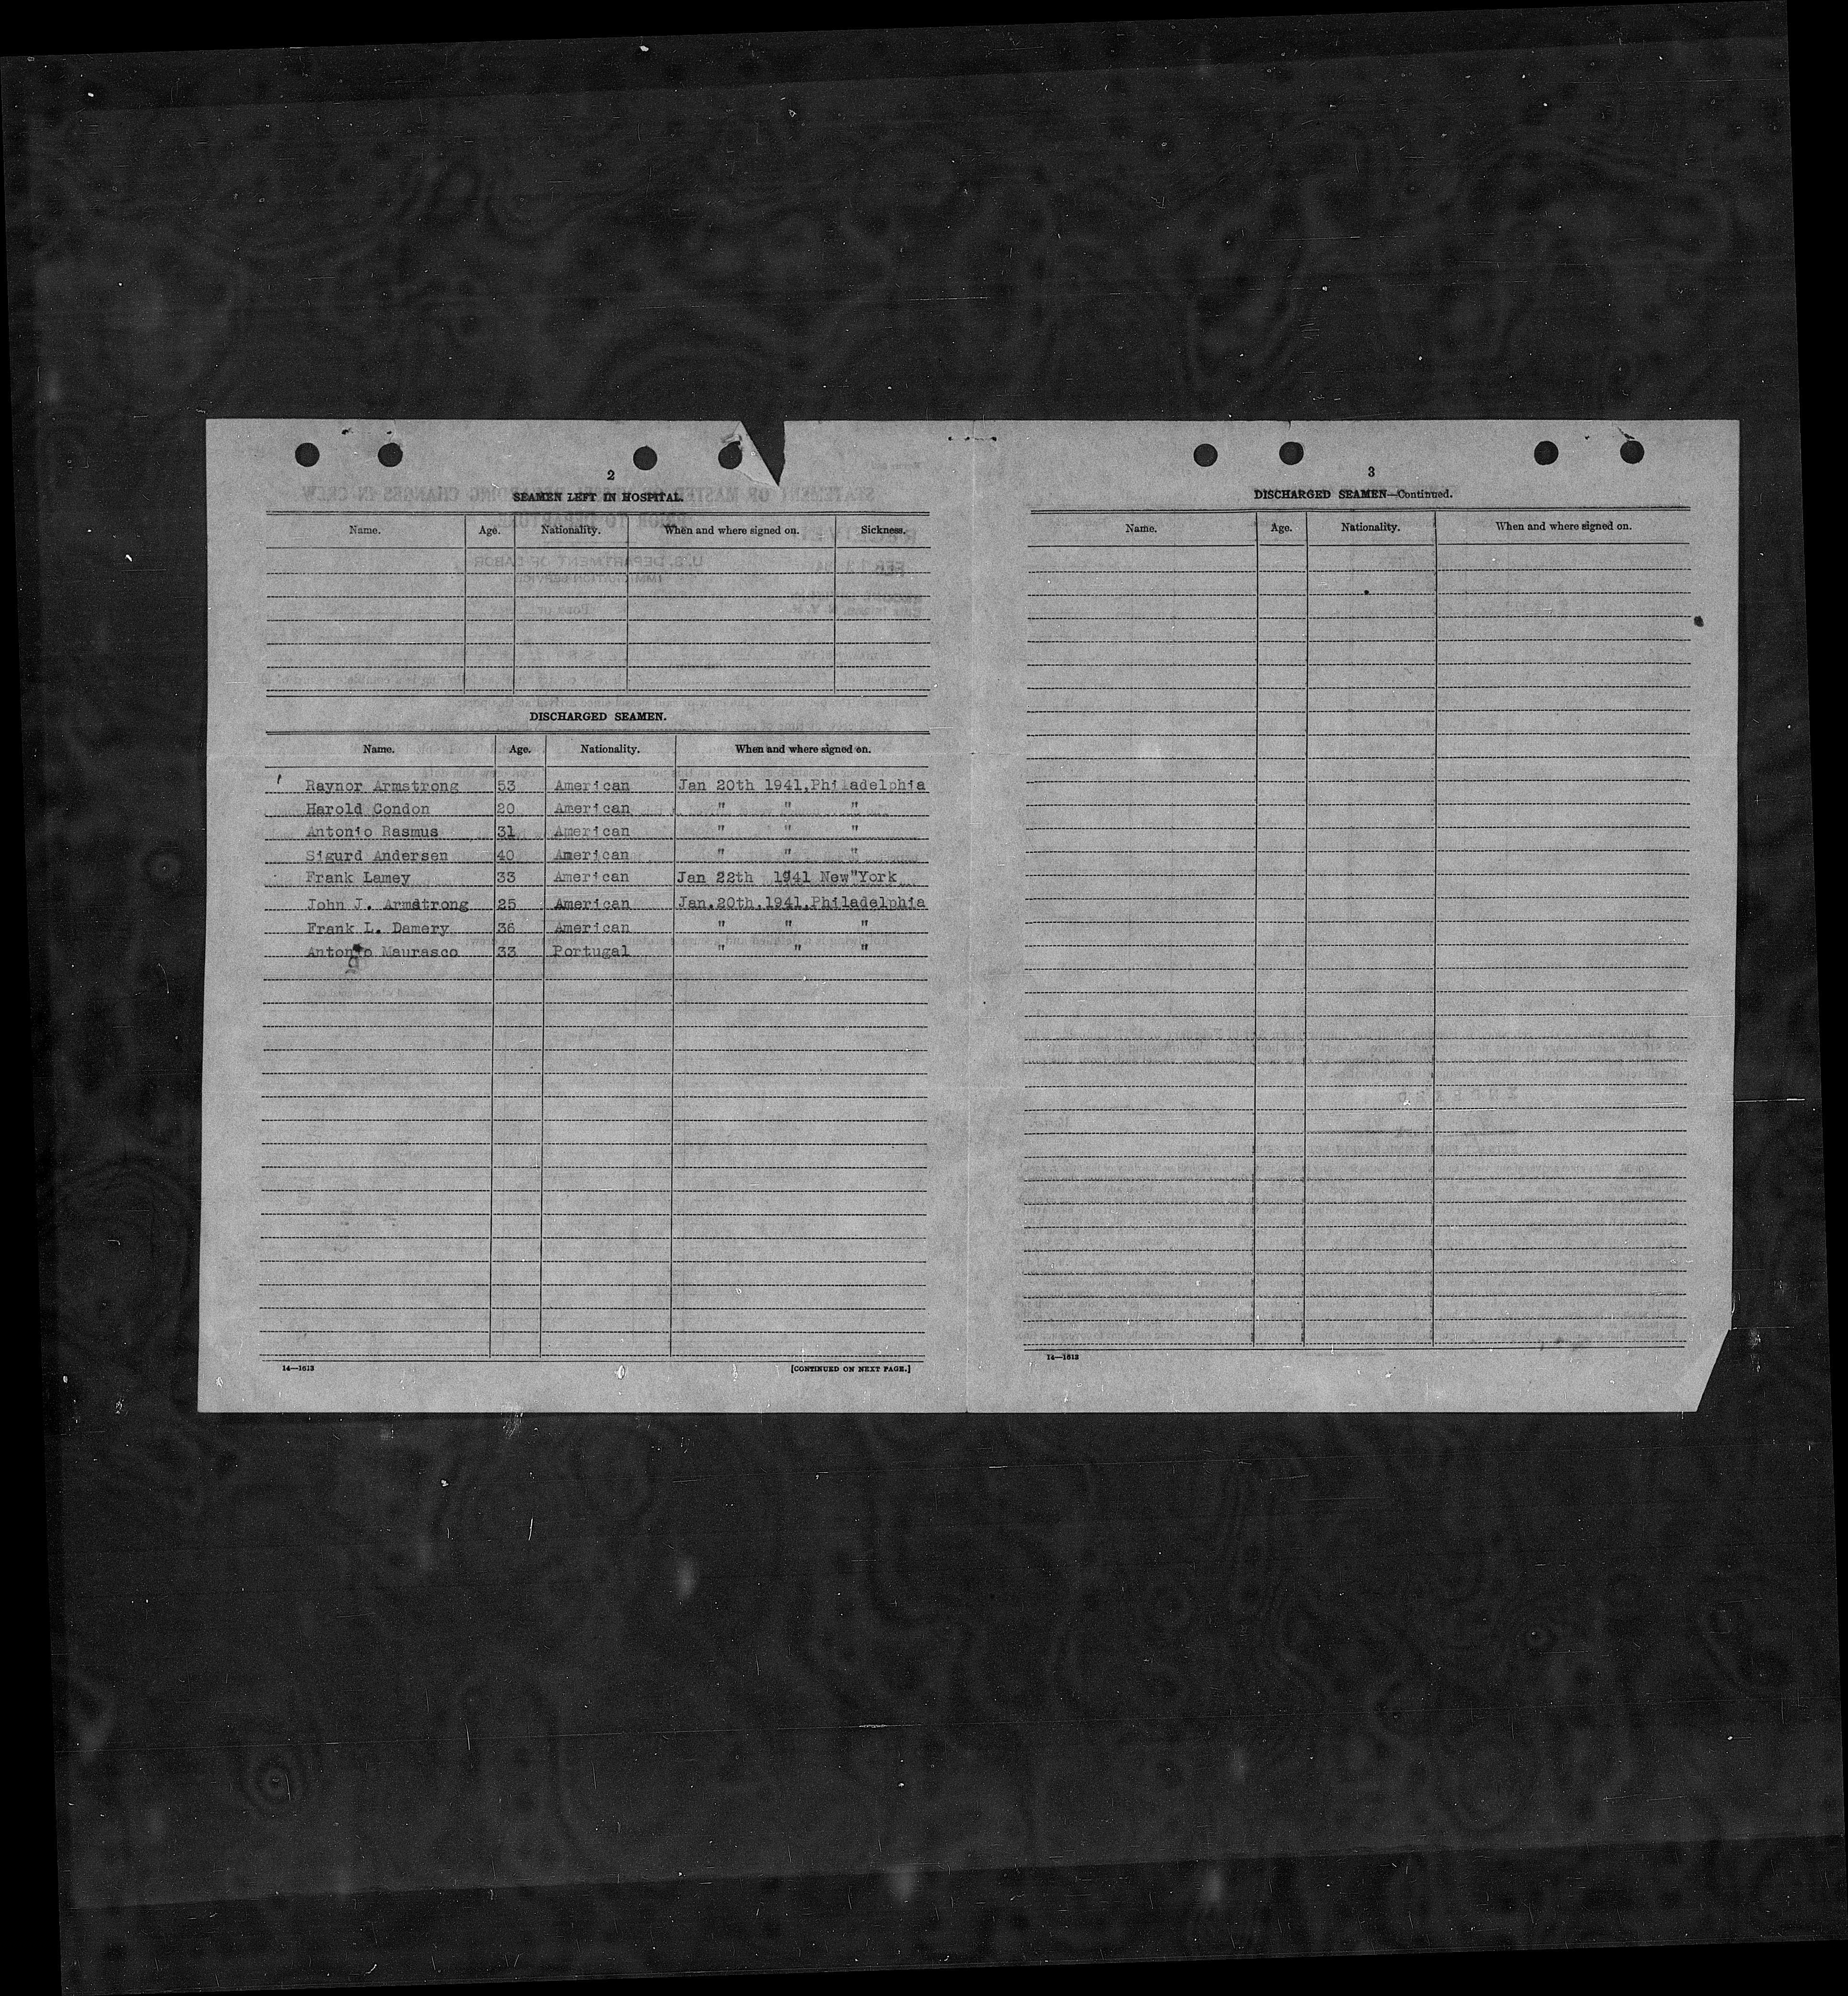 2
SEAMEN LEFT IN HOSPITAL.
Name. Age. Nationality. When and where signed on. Sickness.
DISCHARGED SEAMEN.
Name. Age. Nationality. When and where signed on.
Raynor Armstrong 53 American Jan 20th 1941,Philadelphia
Harold Condon 20 American " " "
Antonio Rasmus 31 American " " "
Sigurd Andersen 40 American " " "
Frank Lamey 33 American Jan 22th 1941 New"York
John J. Armstrong 25 American Jan.20th.1941.Philadelphia
Frank L. Damery 36 American " " "
Antonio Maurasco 33 Portugal " " "
14—1613 [CONTINUED ON NEXT PAGE.]
3
DISCHARGED SEAMEN—Continued.
Name. Age. Nationality. When and where signed on.
14—1613